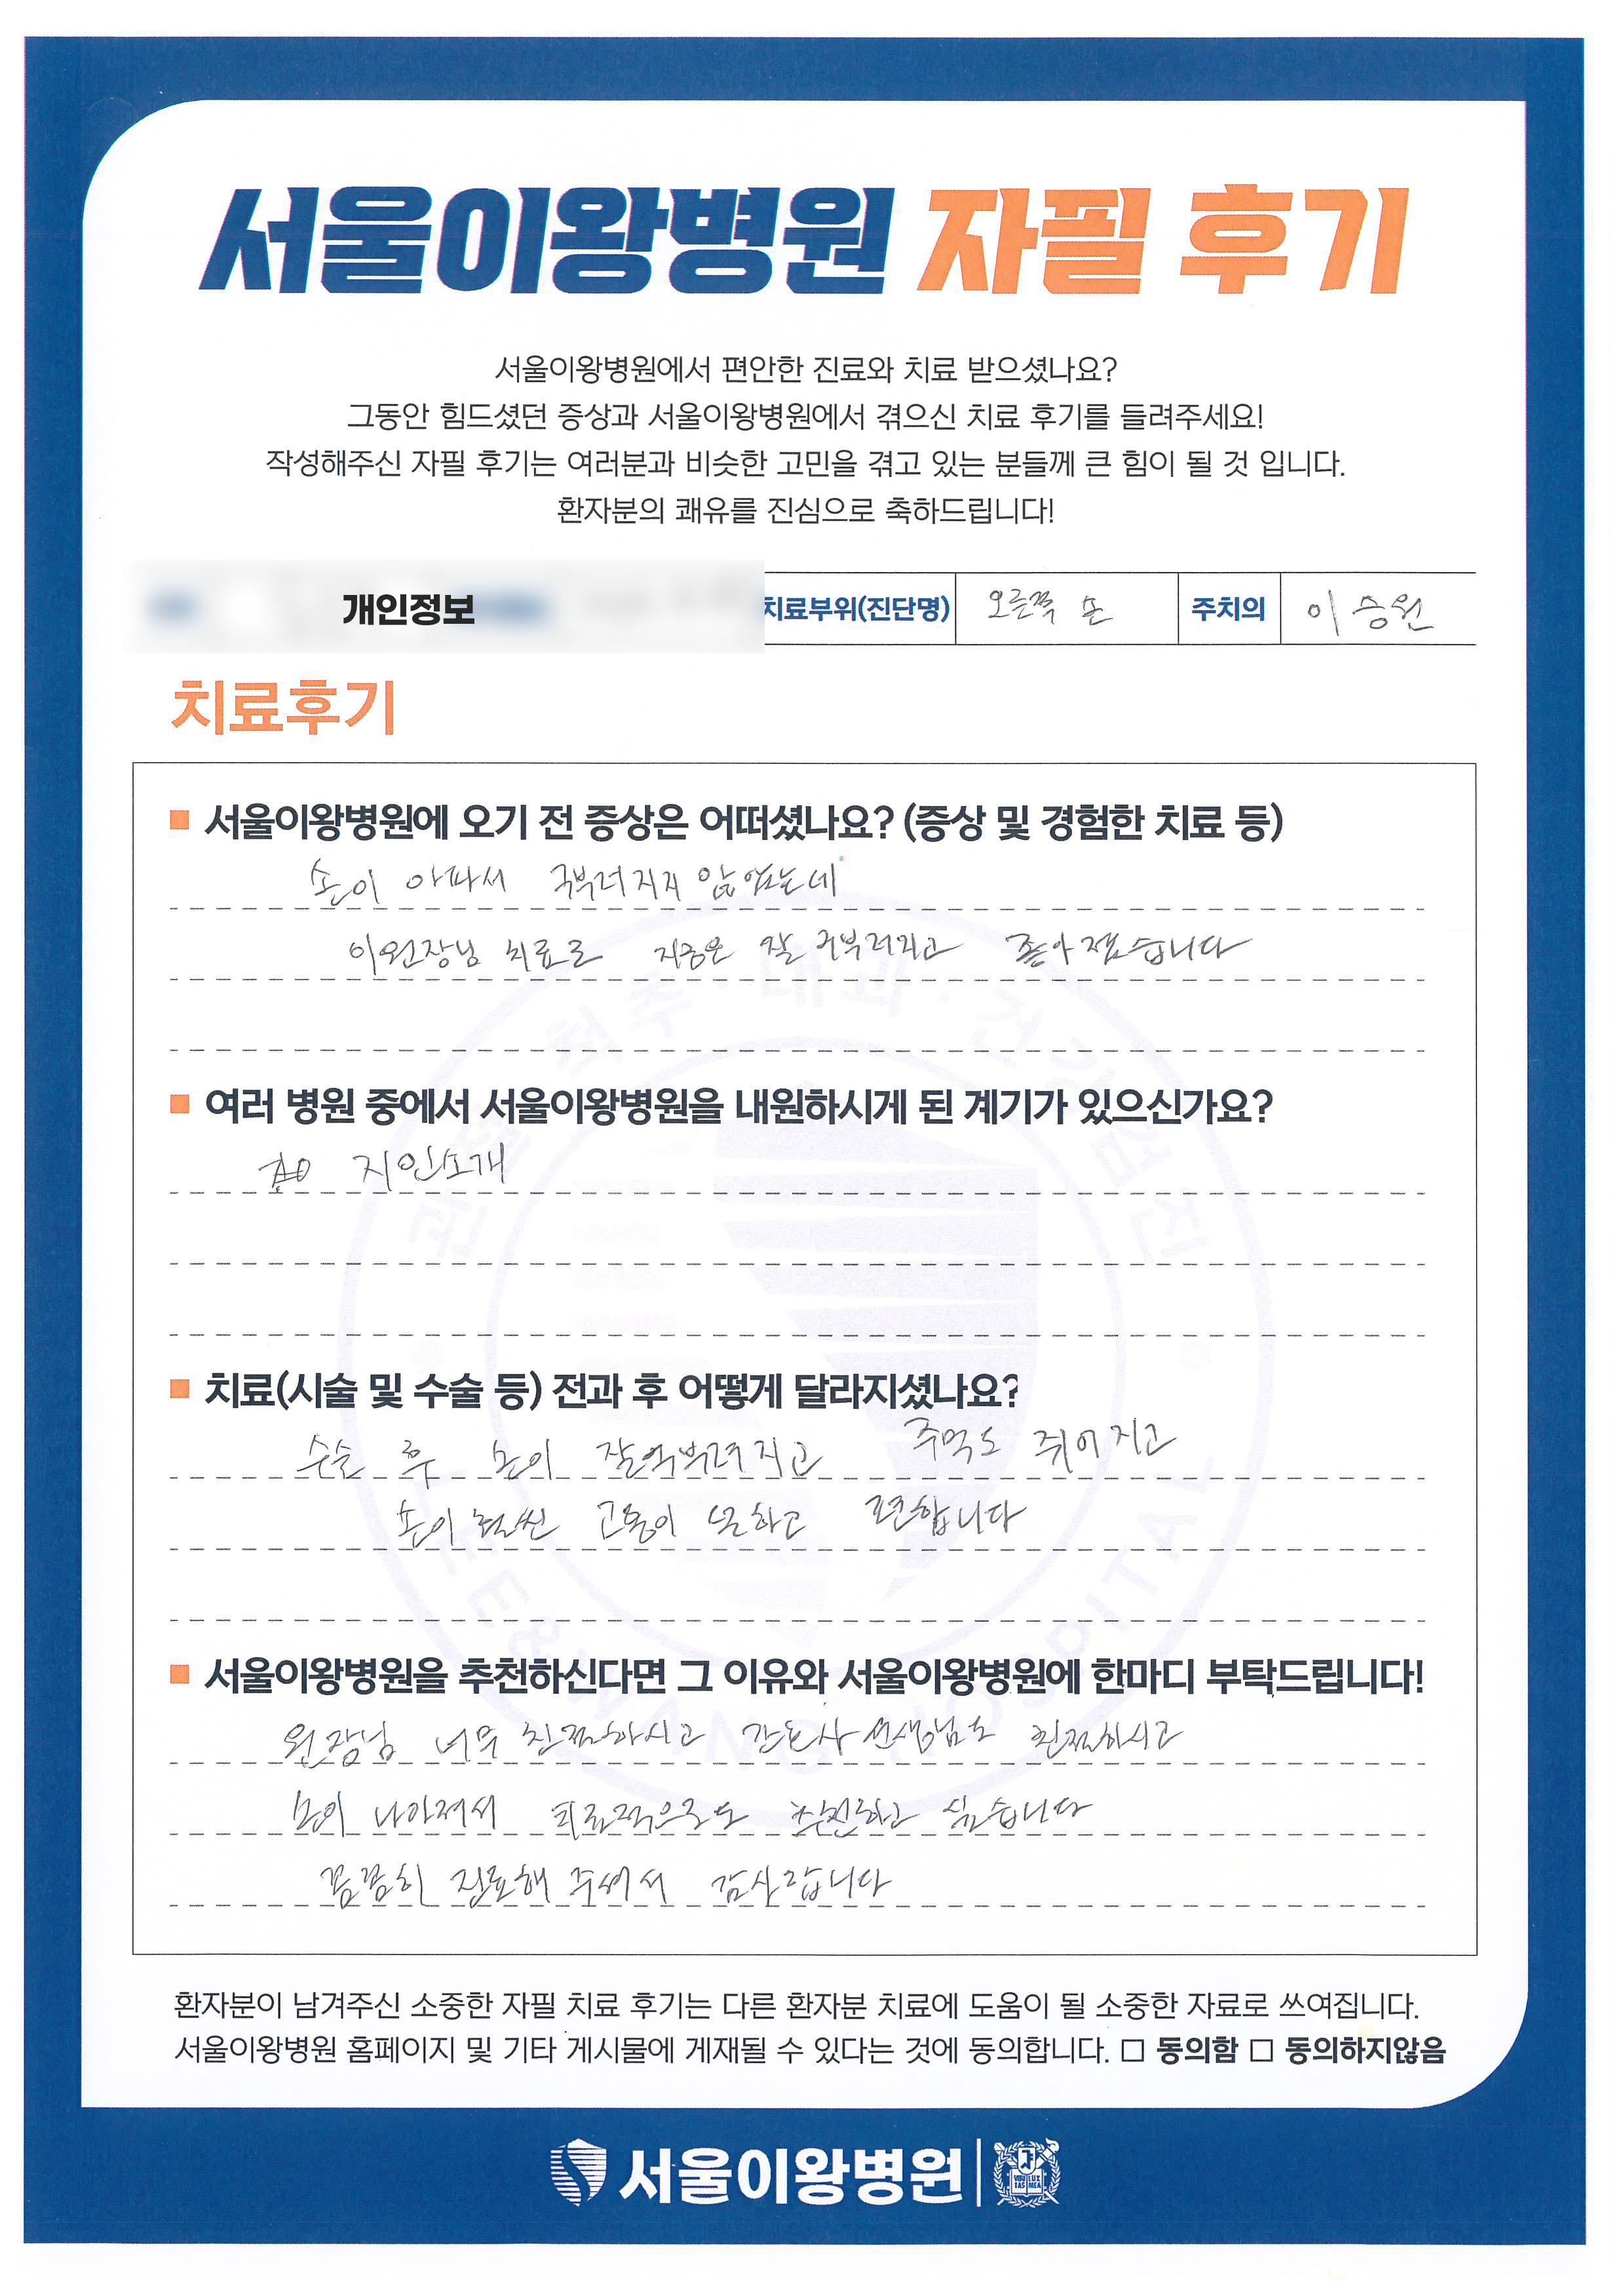 서울이왕병원 자필 후기
서울이왕병원에서 편안한 진료와 치료 받으셨나요?
그동안 힘드셨던 증상과 서울이왕병원에서 겪으신 치료 후기를 들려주세요!
작성해주신 자필 후기는 여러분과 비슷한 고민을 겪고 있는 분들께 큰 힘이 될 것 입니다.
환자분의 쾌유를 진심으로 축하드립니다!
개인정보 치료부위(진단명) 오른쪽 손 주치의 이승원
치료후기
서울이왕병원에 오기 전 증상은 어떠셨나요? (증상 및 경험한 치료 등)
손이 아파서 구부러지지 않았는데
이원장님 치료로 지금은 잘 구부러지고 좋아졌습니다
여러 병원 중에서 서울이왕병원을 내원하시게 된 계기가 있으신가요?
지인소개
치료(시술 및 수술 등) 전과 후 어떻게 달라지셨나요?
수술 후 손이 잘 구부려지고 주먹도 쥐어지고
손이 훨씬 고통이 덜하고 편합니다
서울이왕병원을 추천하신다면 그 이유와 서울이왕병원에 한마디 부탁드립니다!
원장님 너무 친절하시고 간호사 선생님도 친절하시고
손이 나아져서 추천하고 싶습니다
꼼꼼히 진료해 주셔서 감사합니다
환자분이 남겨주신 소중한 자필 치료 후기는 다른 환자분 치료에 도움이 될 소중한 자료로 쓰여집니다.
서울이왕병원 홈페이지 및 기타 게시물에 게재될 수 있다는 것에 동의합니다. □ 동의함 □ 동의하지않음
척추·내과·건강검진
LEE&WANG HOSPITAL
서울이왕병원